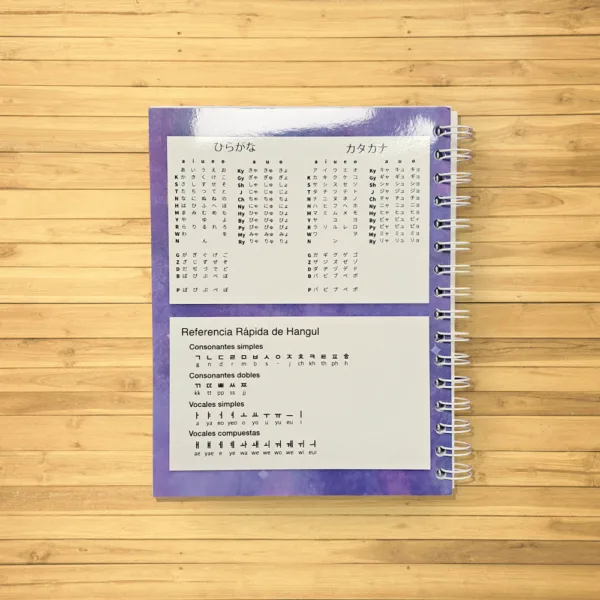 ひらがな
a i u e o
あ い う え お
K か き く け こ
S さ し す せ そ
T た ち つ て と
N な に ぬ ね の
H は ひ ふ へ ほ
M ま み む め も
Y や ゆ よ
R ら り る れ ろ
W わ を
N ん
G が ぎ ぐ げ ご
Z ざ じ ず ぜ ぞ
D だ ぢ づ で ど
B ば び ぶ べ ぼ
P ぱ ぴ ぷ ぺ ぽ
a u o
Ky きゃ きゅ きょ
Gy ぎゃ ぎゅ ぎょ
Sh しゃ しゅ しょ
J じゃ じゅ じょ
Ch ちゃ ちゅ ちょ
Ny にゃ にゅ にょ
Hy ひゃ ひゅ ひょ
By びゃ びゅ びょ
Py ぴゃ ぴゅ ぴょ
My みゃ みゅ みょ
Ry りゃ りゅ りょ
カタカナ
a i u e o
ア イ ウ エ オ
K カ キ ク ケ コ
S サ シ ス セ ソ
T タ チ ツ テ ト
N ナ ニ ヌ ネ ノ
H ハ ヒ フ ヘ ホ
M マ ミ ム メ モ
Y ヤ ユ ヨ
R ラ リ ル レ ロ
W ワ ヲ
N ン
G ガ ギ グ ゲ ゴ
Z ザ ジ ズ ゼ ゾ
D ダ ヂ ヅ デ ド
B バ ビ ブ ベ ボ
P パ ピ プ ペ ポ
a u o
Ky キャ キュ キョ
Gy ギャ ギュ ギョ
Sh シャ シュ ショ
J ジャ ジュ ジョ
Ch チャ チュ チョ
Ny ニャ ニュ ニョ
Hy ヒャ ヒュ ヒョ
By ビャ ビュ ビョ
Py ピャ ピュ ピョ
My ミャ ミュ ミョ
Ry リャ リュ リョ
Referencia Rápida de Hangul
Consonantes simples
ㄱ ㄴ ㄷ ㄹ ㅁ ㅂ ㅅ ㅇ ㅈ ㅊ ㅋ ㅌ ㅍ ㅎ
g n d r m b s - j ch kh th ph h
Consonantes dobles
ㄲ ㄸ ㅃ ㅆ ㅉ
kk tt pp ss jj
Vocales simples
ㅏ ㅑ ㅓ ㅕ ㅗ ㅛ ㅜ ㅠ ㅡ ㅣ
a ya eo yeo o yo u yu eu i
Vocales compuestas
ㅐ ㅒ ㅔ ㅖ ㅘ ㅙ ㅚ ㅝ ㅞ ㅟ ㅢ
ae yae e ye wa we we wo we wi eui